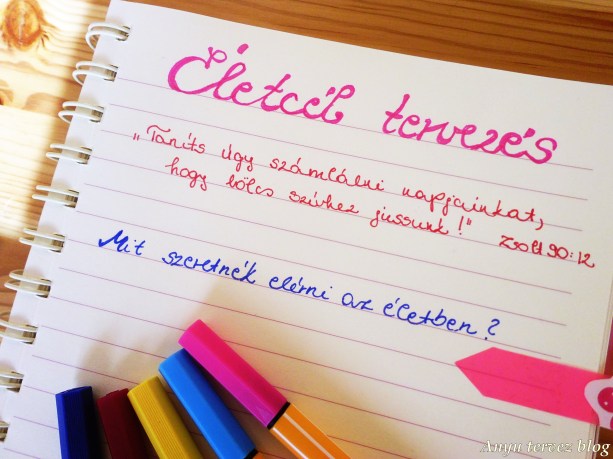 Életcél tervezés
„Taníts úgy számlálni napjainkat,
hogy bölcs szívhez jussunk!" Zsolt 90:12
Mit szeretnék elérni az életben?
Anyu tervez blog